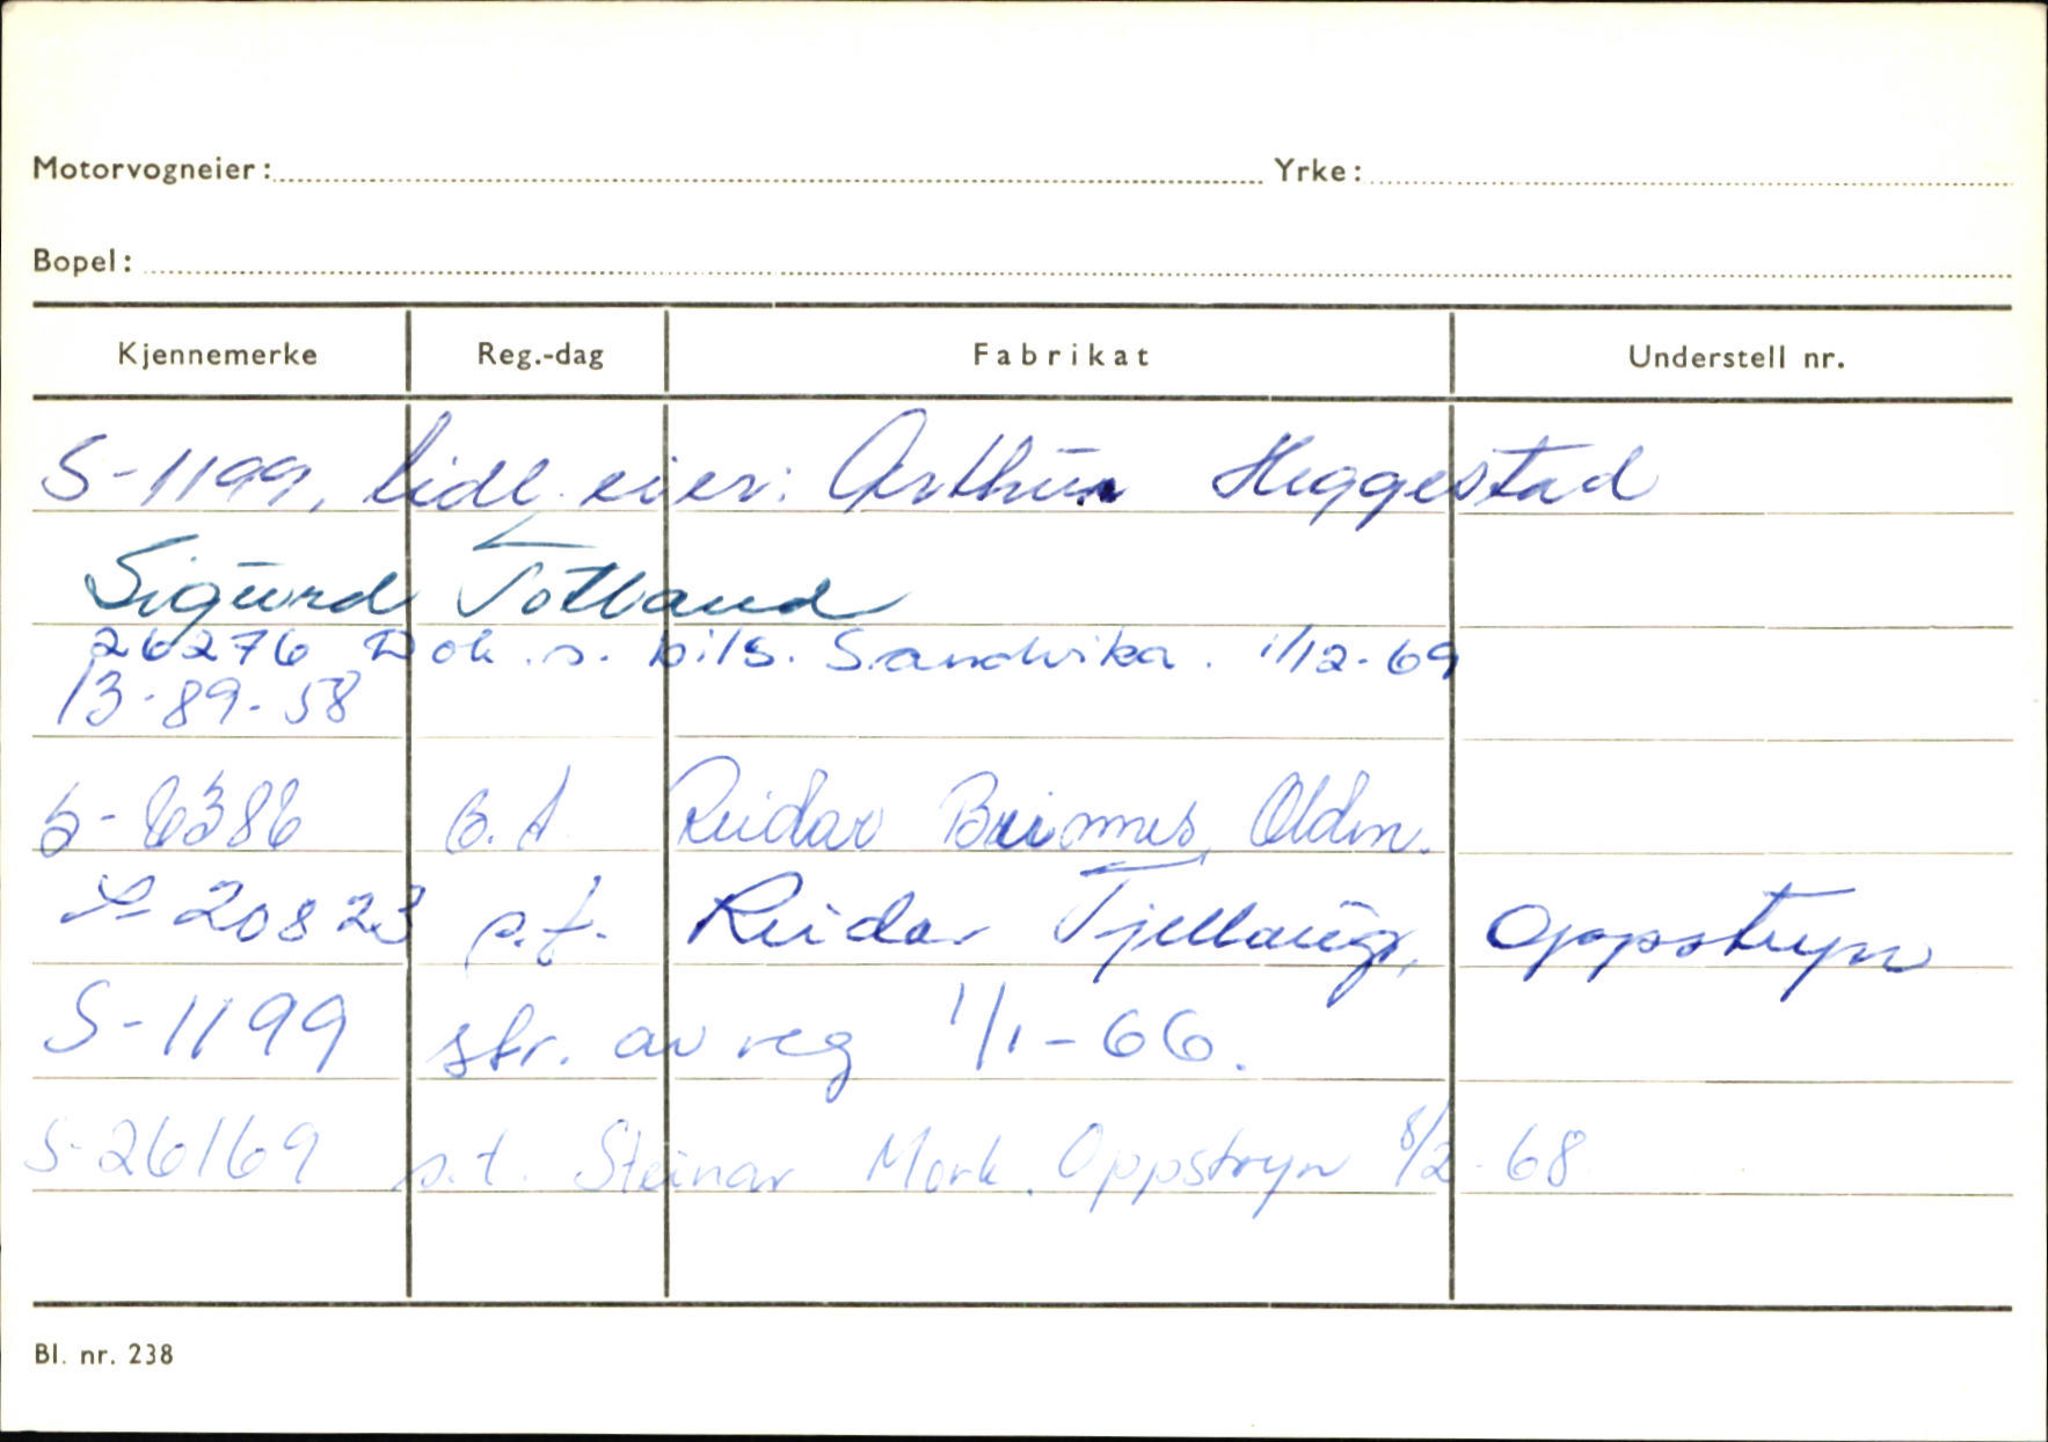 Motorvogneier: Yrke:
Bopel:
Kjennemerke Reg.-dag Fabrikat Understell nr.
S-1199, tidl. eier: Arthur Heggestad
Sigurd Totland
26276 Dok. s. bils. Sandvika. 1/12-69
13-89-58
S-6386 s.t. Reidar Brimnes, Olden.
S-20823 s.t. Reidar Tjellaug, Oppstryn
S-1199 str. av reg 1/1-66.
S-26169 s.t. Steinar Mork. Oppstryn 8/2-68
Bl. nr. 238